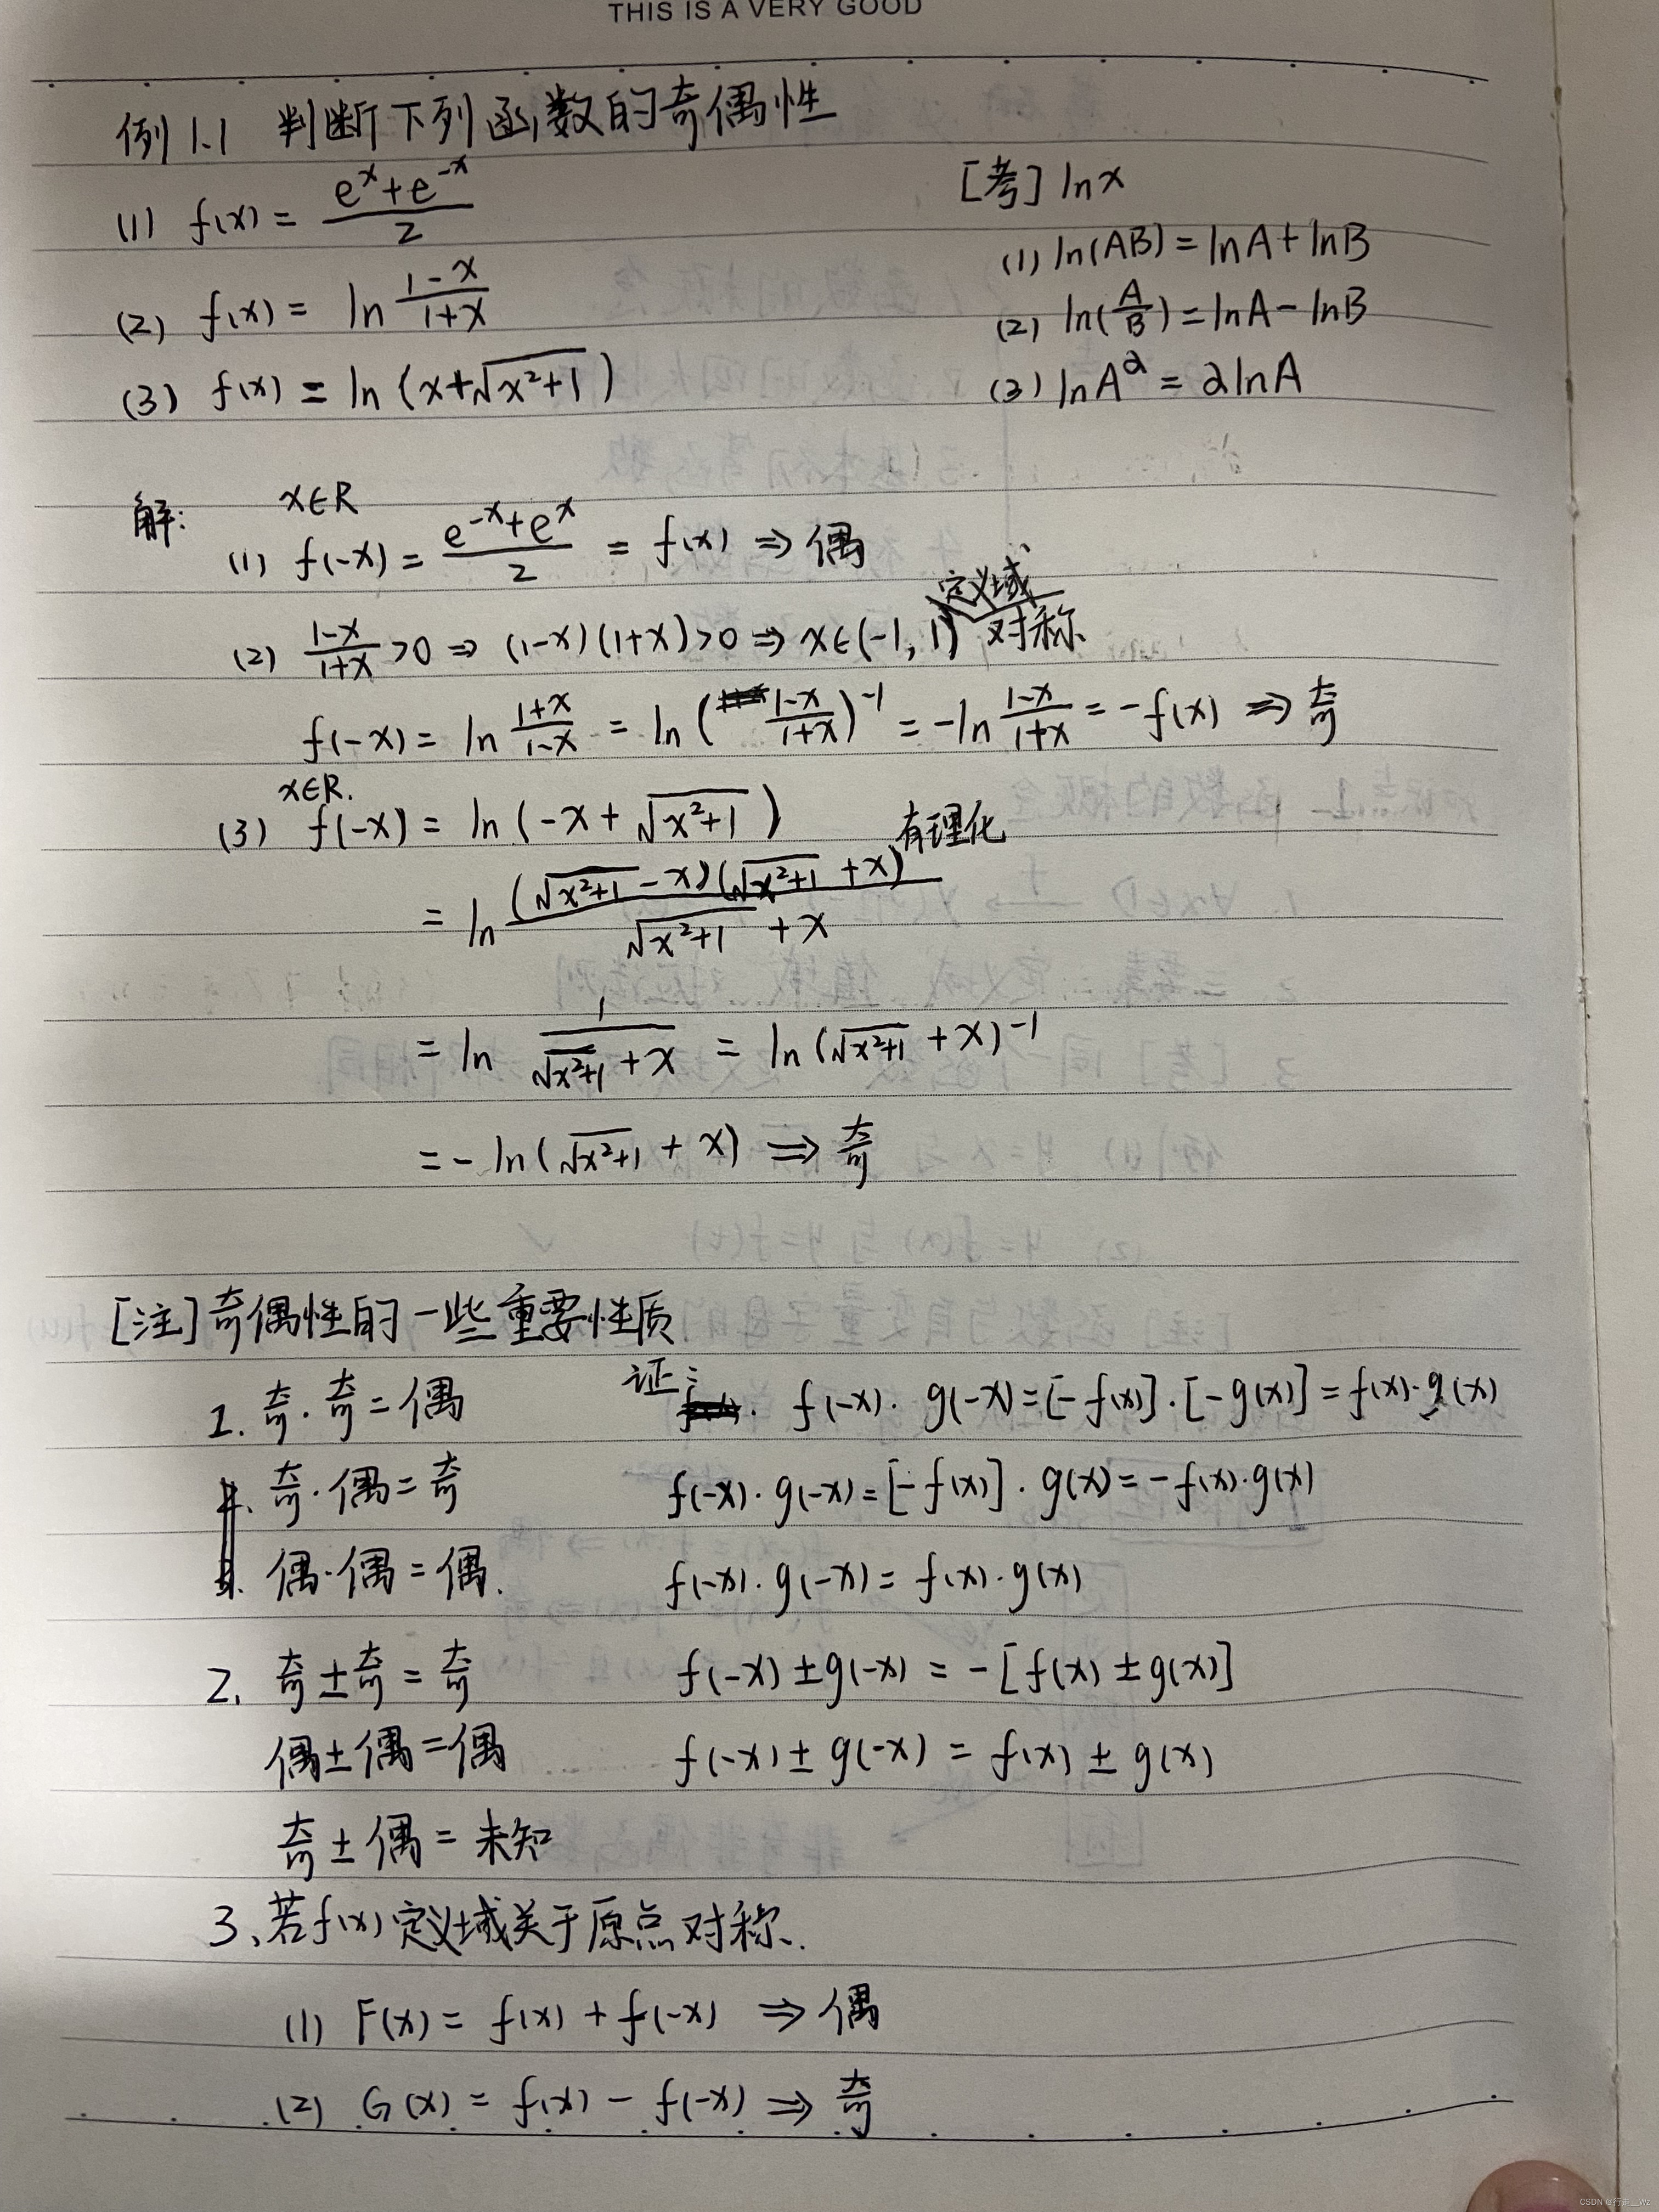 THIS IS A VERY GOOD
例1.1 判断下列函数的奇偶性
(1) f(x) = \frac{e^x+e^{-x}}{2}
(2) f(x) = ln \frac{1-x}{1+x}
(3) f(x) = ln (x+\sqrt{x^2+1})
[考] lnx
(1) ln(AB) = lnA + lnB
(2) ln(\frac{A}{B}) = lnA - lnB
(3) lnA^α = αlnA
解: x∈R
(1) f(-x) = \frac{e^{-x}+e^x}{2} = f(x) ⇒ 偶
(2) \frac{1-x}{1+x}>0 ⇒ (1-x)(1+x)>0 ⇒ x∈(-1, 1) 定义域对称
f(-x) = ln \frac{1+x}{1-x} = ln (\frac{1-x}{1+x})^{-1} = -ln \frac{1-x}{1+x} = -f(x) ⇒ 奇
x∈R.
(3) f(-x) = ln (-x + \sqrt{x^2+1})
= ln \frac{(\sqrt{x^2+1} - x)(\sqrt{x^2+1} + x)}{\sqrt{x^2+1} + x} 有理化
= ln \frac{1}{\sqrt{x^2+1} + x} = ln (\sqrt{x^2+1} + x)^{-1}
= - ln (\sqrt{x^2+1} + x) ⇒ 奇
[注] 奇偶性的一些重要性质
1. 奇·奇 = 偶 证: f(-x)·g(-x) = [-f(x)]·[-g(x)] = f(x)·g(x)
奇·偶 = 奇 f(-x)·g(-x) = [-f(x)]·g(x) = -f(x)·g(x)
偶·偶 = 偶. f(-x)·g(-x) = f(x)·g(x)
2. 奇±奇 = 奇 f(-x) ± g(-x) = -[f(x) ± g(x)]
偶±偶 = 偶 f(-x) ± g(-x) = f(x) ± g(x)
奇±偶 = 未知
3、若f(x)定义域关于原点对称.
(1) F(x) = f(x) + f(-x) ⇒ 偶
(2) G(x) = f(x) - f(-x) ⇒ 奇